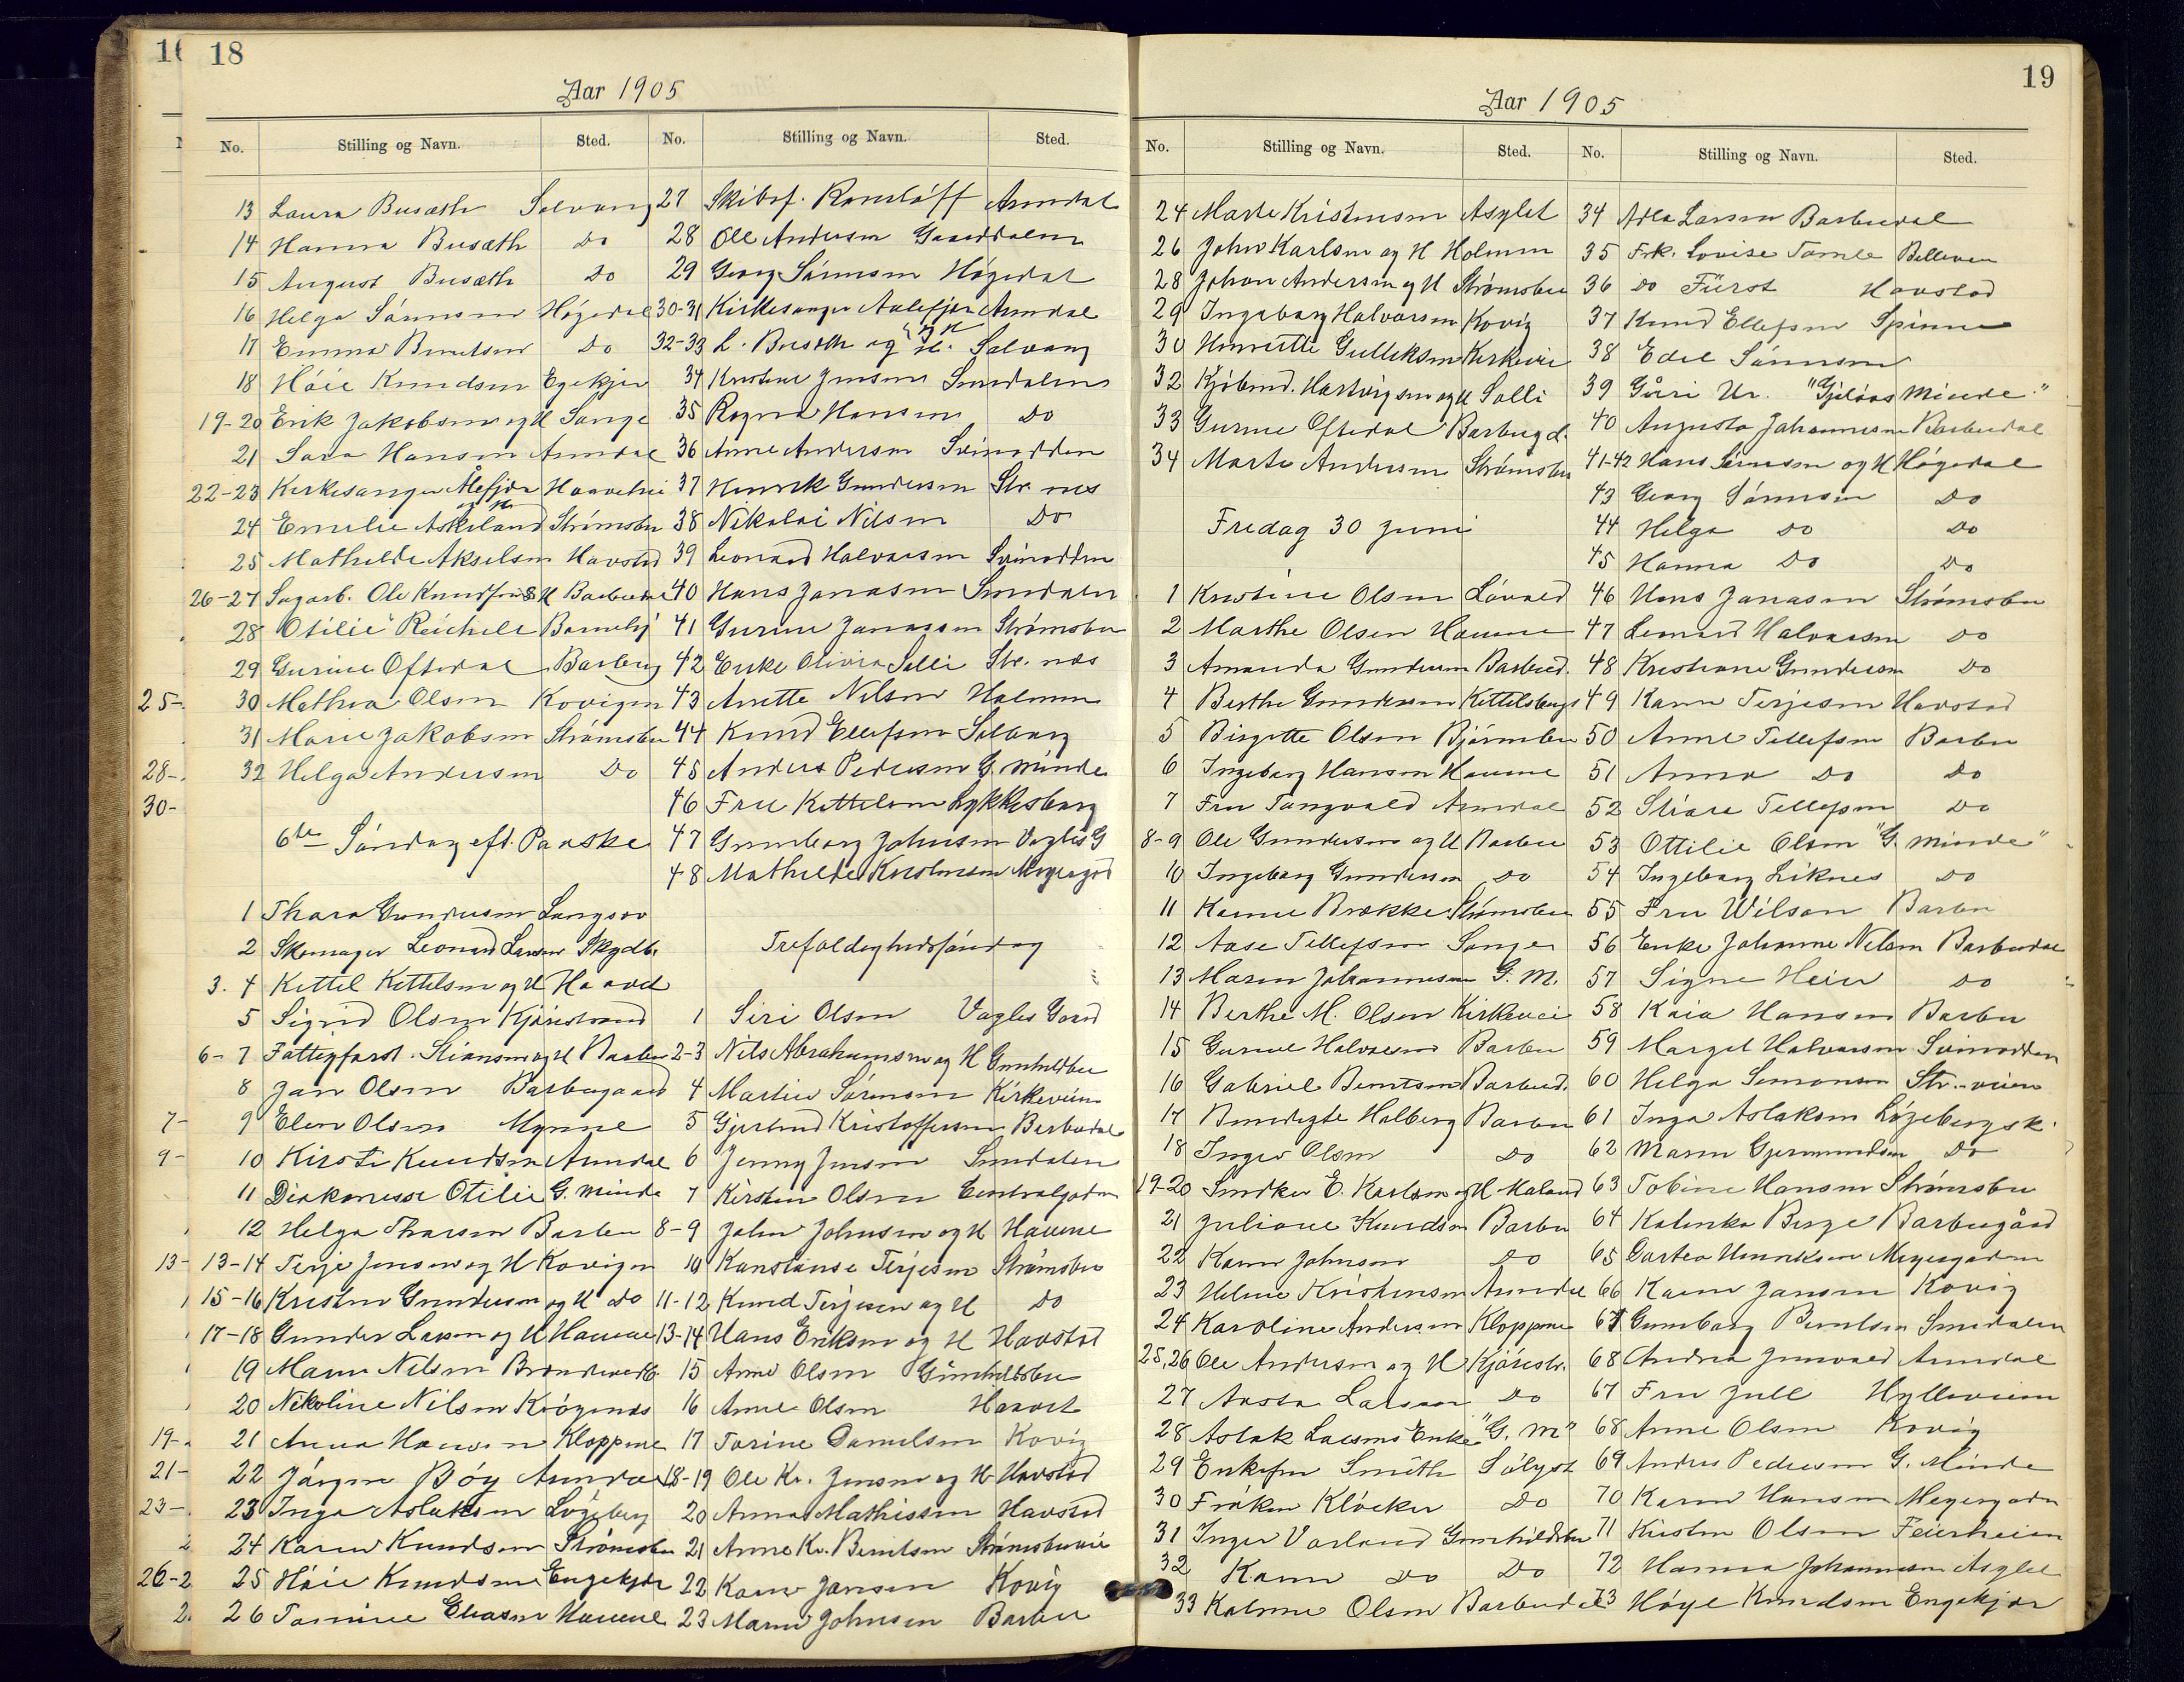 18
Aar 1905
No. Stilling og Navn. Sted. No. Stilling og Navn. Sted.
13 Laura Busæth Solvang
14 Hanna Busæth Do
15 August Busæth Do
16 Helga Sørensen Høgedal
17 Emma Berntsen Do
18 Høie Knudsen Egekjær
19-20 Erik Jakobsen og H Sange
21 Sara Hansen Arendal
22-23 Kirkesanger Ålefjær og H Haavetvei
24 Emilie Askeland Strømsbu
25 Mathilde Akselsen Havstad
26-27 Sagarb. Ole Knudsen & H Barbudal
28 Otilie Reichelt Barnehj
29 Gurine Oftedal Barbug
30 Mathea Olsen Kovigen
31 Marie Jakobsen Strømsbu
32 Helga Andersen Do
6te Søndag eft. Paaske
1 Thara Gundersen Langsæv
2 Skomager Leonard Larsen Skydeb.
3. 4 Kittel Kittelsen og H Haavet
5 Sigrid Olsen Kjørestrand
6-7 Fattigforst. Stiansen og H Barbu
8 Jan Olsen Barbugaard
9 Elen Olsen Myrene
10 Kirsti Knudsen Arendal
11 Diakonisse Otilie G. minde
12 Helga Tharsen Barbu
13-14 Terje Jensen og H Kovigen
15-16 Kristen Gundersen og H Do
17-18 Gunder Larsen og H Hauene
19 Maren Nilsen Brændevinsb.
20 Nikoline Nilsen Krøgenes
21 Anna Hansen Kloppene
22 Jørgen Bøy Arendal
23 Inga Aslaksen Løgeberg
24 Karen Knudsen Strømsbu
25 Høie Knudsen Engekjær
26 Tomine Eliasen Hauene
27 Skibsf. Rømeløff Arendal
28 Ole Andersen Gaaddalen
29 Georg Sørensen Høgedal
30-31 Kirkesanger Aalefjær og H Arendal
32-33 L. Busæth og H. Solvang
34 Kristine Jensen Smedalen
35 Ragna Hansen Do
36 Anne Andersen Svinodden
37 Henrik Gundersen Str. nes
38 Nikolai Nilsen Do
39 Leonard Halvorsen Svinodden
40 Hans Jonasen Smedalen
41 Gurine Jonassen Strømsbu
42 Enke Olivia Solli Str. nes
43 Anette Nilsen Holmen
44 Knud Ellefsen Solberg
45 Anders Pedersen G. minde
46 Fru Kittelsen Lykkesborg
47 Gunborg Johnsen Vogles G
48 Mathilde Kristensen Meyergd
Trefoldighedssøndag
1 Siri Olsen Vogles Gaard
2-3 Nils Abrahamsen og H Gunhildbu
4 Martin Sørensen Kirkeveien
5 Gjerlaud Kristoffersen Barbudal
6 Jenny Jensen Smedalen
7 Kirsten Olsen Centralgaden
8-9 John Johnsen og H Hauene
10 Konstanse Terjesen Strømsbu
11-12 Knud Terjesen og H Do
13-14 Hans Eriksen og H Havstad
15 Anne Olsen Gunhildsbu
16 Anne Olsen Haavet
17 Torine Danielsen Kovig
18-19 Ole Kr. Jensen og H Havstad
20 Anna Mathissen Havstad
21 Anne Kr. Berntsen Strømsbuvei
22 Karen Jansen Kovig
23 Maren Johnsen Barbu
19
Aar 1905
No. Stilling og Navn. Sted. No. Stilling og Navn. Sted.
24 Marte Kristensen Asylet
26 John Karlsen og H Holmen
28 Johan Andersen og H Strømsbu
29 Ingeborg Halvorsen Kovig
30 Henriette Gulliksen Kirkevei
32 Kjøbmd. Hartvigsen og H Solli
33 Gurine Oftedal Barbugd.
34 Marte Andersen Strømsbu
Fredag 30 Juni
1 Kristine Olsen Løvold
2 Marthe Olsen Hauene
3 Amanda Gundersen Barbud.
4 Berthe Gundersen Kittelsbugt
5 Birgitte Olsen Bjørnebu
6 Ingeborg Hansen Hauene
7 Fru Tangvald Arendal
8-9 Ole Gundersen og H Barbu
10 Ingeborg Gundersen Do
11 Karine Brække Strømsbu
12 Aase Tellefsen Songe
13 Maren Johannesen G. M.
14 Berthe M. Olsen Kirkevei
15 Gurine Halvorsen Barbu
16 Gabriel Berntsen Barbud.
17 Benedigte Holberg Barbu
18 Inger Olsen Do
19-20 Smdker E. Karlsen og H Moland
21 Juliane Knudsen Barbu
22 Karen Johnsen Do
23 Helene Kristensen Arendal
24 Karoline Andersen Kloppene
25,26 Ole Andersen og H Kjørestr.
27 Aasta Larsen Do
28 Aslak Larsens Enke "G. M"
29 Enkefru Smith Sølyst
30 Frøken Kløcker Do
31 Inger Vorland Gunhildsbu
32 Karen Do Do
33 Kalene Olsen Barbudal
34 Atla Larsen Barbudal
35 Frk. Lovise Tomle Bellevue
36 Do Fürst Havstad
37 Knud Ellefsen Spinne
38 Edel Sørensen
39 Gúri Ur. "Gjeløos minde"
40 Augusta Johannesen Barbudal
41-42 Hans Sørensen og H Høgedal
43 Georg Sørensen Do
44 Helga Do Do
45 Hanna Do Do
46 Hans Jonasen Strømsbu
47 Leonard Halvorsen Do
48 Kristiane Gundersen Do
49 Karen Terjesen Havstad
50 Anne Tellefsen Barbu
51 Anna Do Do
52 Stiare Tellefsen Do
53 Ottilie Olsen "G. minde"
54 Ingeborg Liknes Do
55 Fru Wilson Barbu
56 Enke Johanne Nilsen Barbudal
57 Signe Heier Do
58 Kaia Hansen Barbu
59 Margit Halvorsen Svinodden
60 Helga Simonsen Str.-veien
61 Inga Aslaksen Løgebergsk.
62 Maren Gjermundsen Do
63 Tobine Hansen Strømsbu
64 Kalinka Berge Barbugård
65 Dortea Henriksen Meyergaden
66 Karen Jansen Kovig
67 Gunborg Berntsen Smedalen
68 Andrea Jensvold Arendal
67 Fru Juell Hylleveien
68 Anne Olsen Kovig
69 Anders Pedersen G. Minde
70 Karen Hansen Meyergaden
71 Kirsten Olsen Feierheien
72 Hanna Johannesen Asylet
73 Høye Knudsen Engekjær